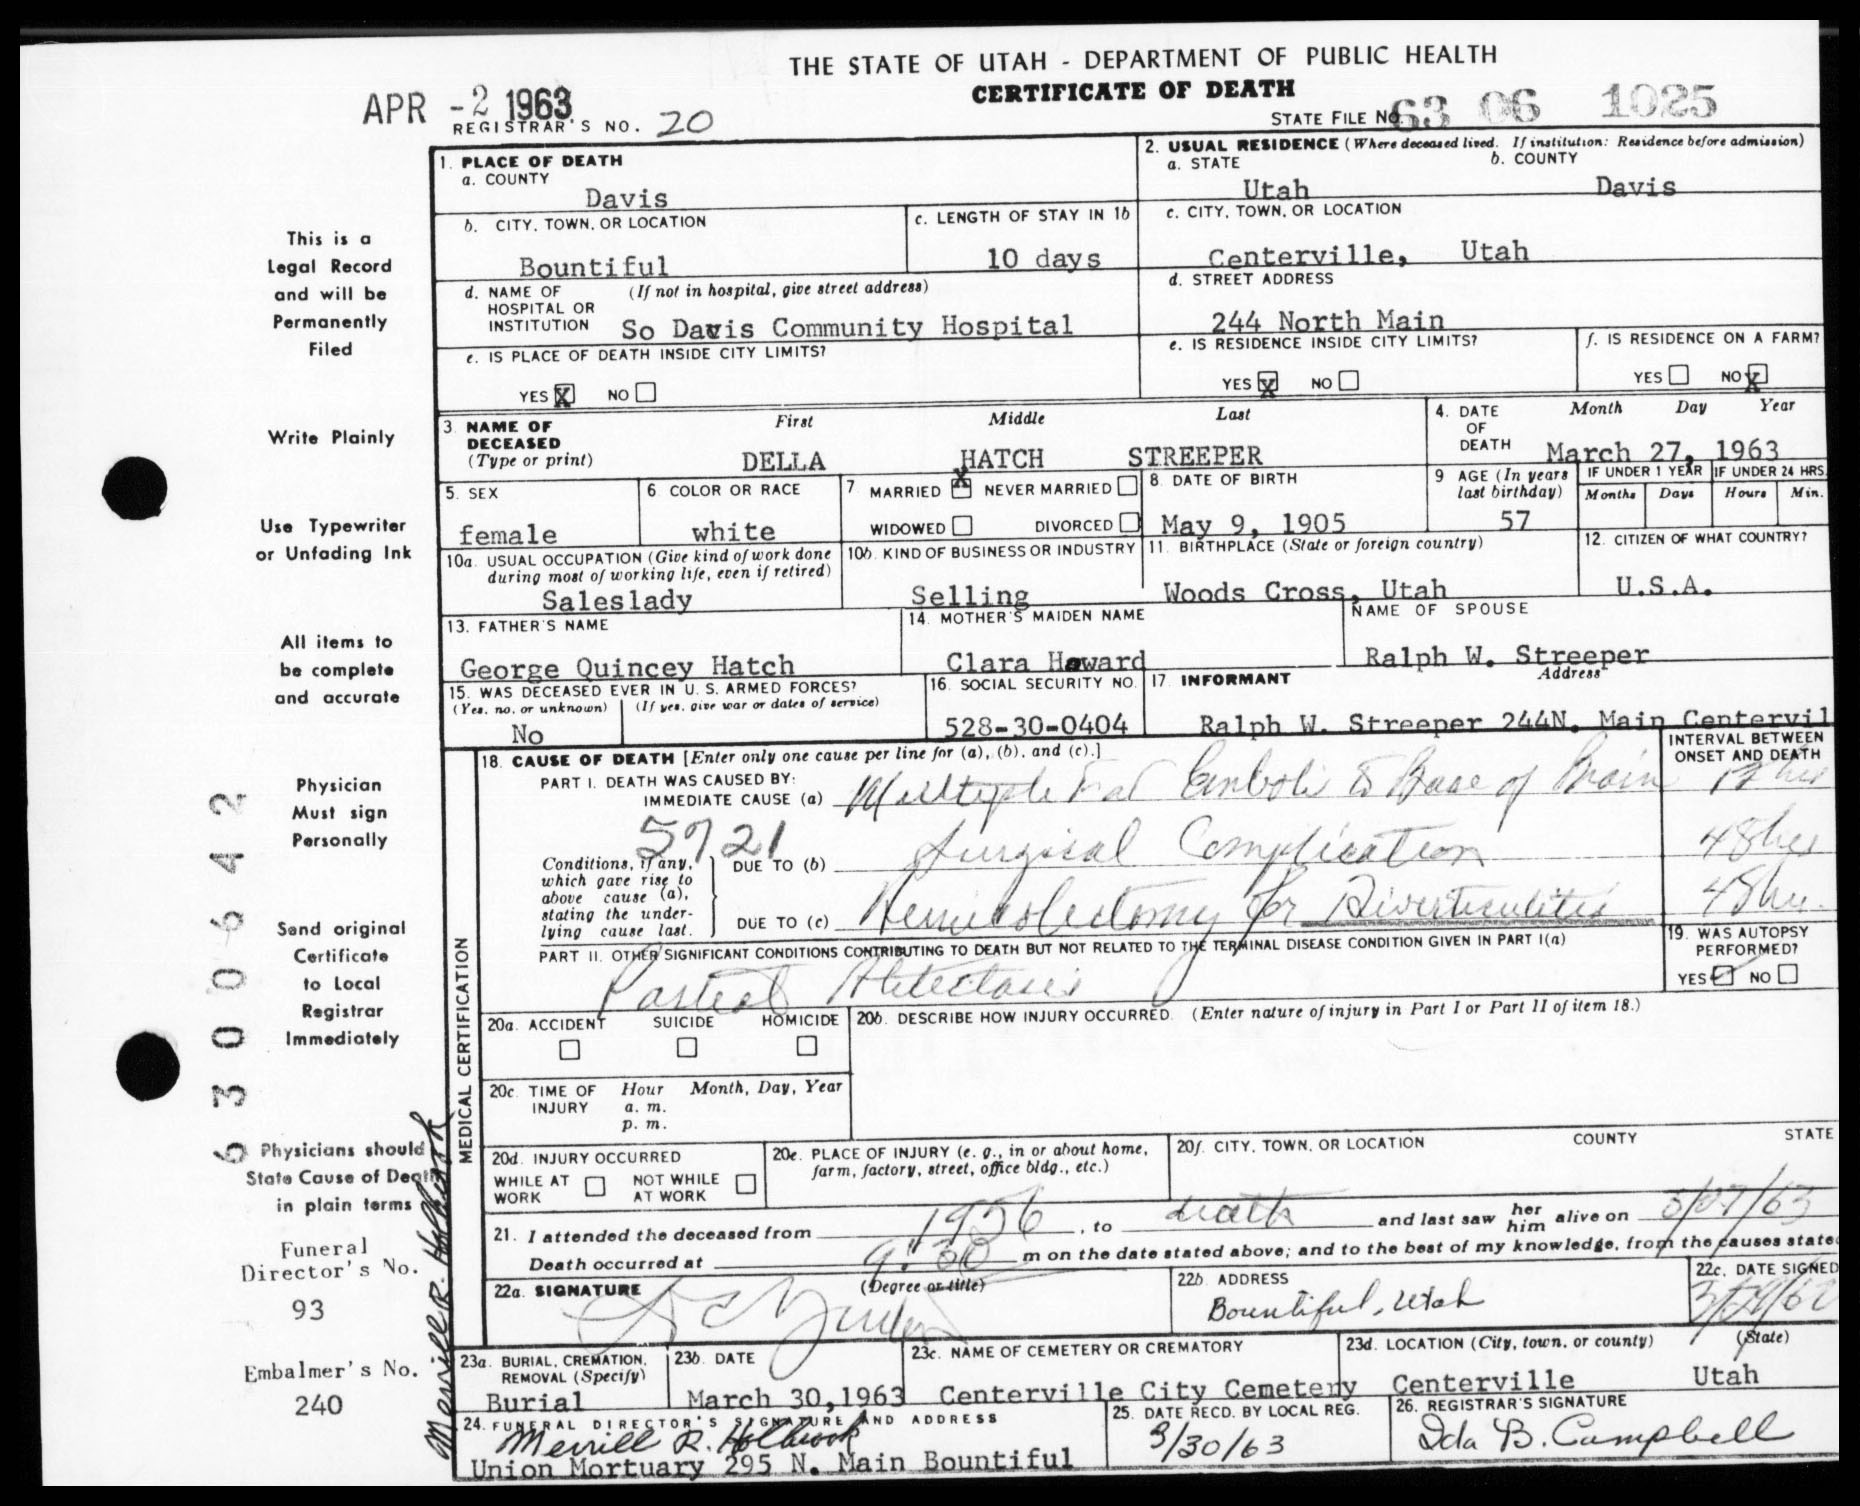 THE STATE OF UTAH - DEPARTMENT OF PUBLIC HEALTH
CERTIFICATE OF DEATH
APR -2 1963
REGISTRAR'S NO. 20
STATE FILE NO. 63 06 1025
This is a
Legal Record
and will be
Permanently
Filed
Write Plainly
Use Typewriter
or Unfading Ink
All items to
be complete
and accurate
Physician
Must sign
Personally
Send original
Certificate
to Local
Registrar
Immediately
Physicians should
State Cause of Death
in plain terms
Funeral
Director's No.
93
Embalmer's No.
240
6300642
Merrill R. Holbrook
1. PLACE OF DEATH
a. COUNTY
Davis
2. USUAL RESIDENCE (Where deceased lived. If institution: Residence before admission)
a. STATE b. COUNTY
Utah Davis
b. CITY, TOWN, OR LOCATION
Bountiful
c. LENGTH OF STAY IN 1b
10 days
c. CITY, TOWN, OR LOCATION
Centerville, Utah
d. NAME OF (If not in hospital, give street address)
HOSPITAL OR
INSTITUTION So Davis Community Hospital
d. STREET ADDRESS
244 North Main
e. IS PLACE OF DEATH INSIDE CITY LIMITS?
YES X NO
e. IS RESIDENCE INSIDE CITY LIMITS?
YES X NO
f. IS RESIDENCE ON A FARM?
YES NO X
3. NAME OF First Middle Last
DECEASED
(Type or print) DELLA HATCH STREEPER
4. DATE Month Day Year
OF
DEATH March 27, 1963
5. SEX
female
6. COLOR OR RACE
white
7 MARRIED X NEVER MARRIED
WIDOWED DIVORCED
8. DATE OF BIRTH
May 9, 1905
9 AGE (In years
last birthday)
57
IF UNDER 1 YEAR IF UNDER 24 HRS.
Months Days Hours Min.
10a. USUAL OCCUPATION (Give kind of work done
during most of working life, even if retired)
Saleslady
10b. KIND OF BUSINESS OR INDUSTRY
Selling
11. BIRTHPLACE (State or foreign country)
Woods Cross, Utah
12. CITIZEN OF WHAT COUNTRY?
U.S.A.
13. FATHER'S NAME
George Quincey Hatch
14. MOTHER'S MAIDEN NAME
Clara Howard
NAME OF SPOUSE
Ralph W. Streeper
15. WAS DECEASED EVER IN U.S. ARMED FORCES?
(Yes, no, or unknown) (If yes, give war or dates of service)
No
16. SOCIAL SECURITY NO.
528-30-0404
17 INFORMANT Address
Ralph W. Streeper 244N. Main Centervil
MEDICAL CERTIFICATION
18. CAUSE OF DEATH [Enter only one cause per line for (a), (b), and (c).]
INTERVAL BETWEEN
ONSET AND DEATH
PART I. DEATH WAS CAUSED BY:
IMMEDIATE CAUSE (a) Multiple Fat Emboli to Base of Brain 12 hrs
5721
Conditions, if any,
which gave rise to
above cause (a),
stating the under-
lying cause last.
DUE TO (b) Surgical Complication 48 hrs
DUE TO (c) Hemicolectomy for Diverticulitis 48 hrs.
PART II. OTHER SIGNIFICANT CONDITIONS CONTRIBUTING TO DEATH BUT NOT RELATED TO THE TERMINAL DISEASE CONDITION GIVEN IN PART I(a)
Partial Atelectasis
19. WAS AUTOPSY
PERFORMED?
YES NO
20a. ACCIDENT SUICIDE HOMICIDE
20b. DESCRIBE HOW INJURY OCCURRED. (Enter nature of injury in Part I or Part II of item 18.)
20c. TIME OF Hour Month, Day, Year
INJURY a. m.
p. m.
20d. INJURY OCCURRED
WHILE AT WORK NOT WHILE AT WORK
20e. PLACE OF INJURY (e. g., in or about home,
farm, factory, street, office bldg., etc.)
20f. CITY, TOWN, OR LOCATION COUNTY STATE
21. I attended the deceased from 1956, to death and last saw her him alive on 3/27/63
Death occurred at 9:30 m on the date stated above; and to the best of my knowledge, from the causes state
22a. SIGNATURE (Degree or title)
22b. ADDRESS
Bountiful, Utah
22c. DATE SIGNED
23a. BURIAL, CREMATION,
REMOVAL (Specify)
Burial
23b. DATE
March 30,1963
23c. NAME OF CEMETERY OR CREMATORY
Centerville City Cemetery
23d. LOCATION (City, town, or county) (State)
Centerville Utah
24. FUNERAL DIRECTOR'S SIGNATURE AND ADDRESS
Merrill R. Holbrook
Union Mortuary 295 N. Main Bountiful
25. DATE RECD. BY LOCAL REG.
3/30/63
26. REGISTRAR'S SIGNATURE
Ida B. Campbell